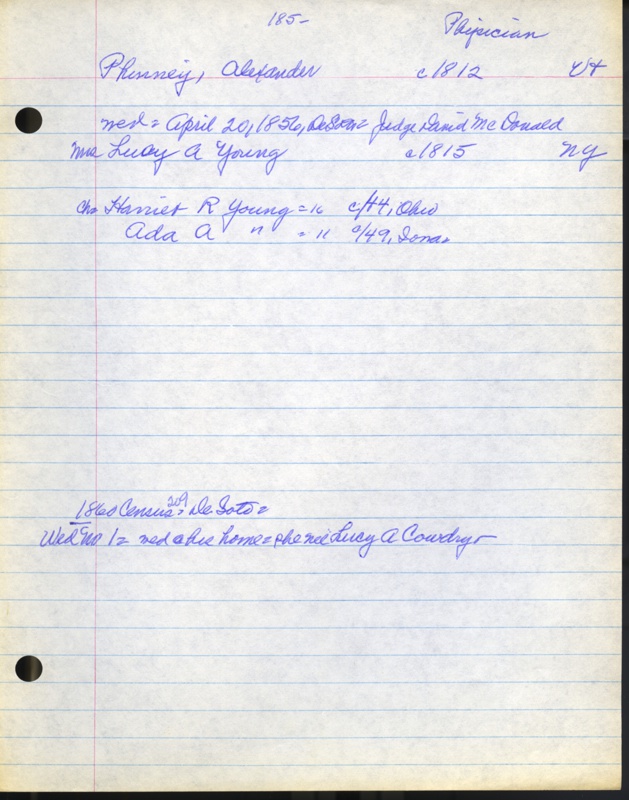 185-
Physician
Phinney, Alexander c1812 Vt
wed = April 20, 1856, DeSoto = Judge David McDonald
Mrs Lucy A Young c1815 NY
chn Harriet R Young = 16 c/44, Ohio
Ada A " = 11 c/49, Iowa
1860 Census 209 = DeSoto =
Wed No 1 = wed @ his home = she née Lucy A Cowdry -